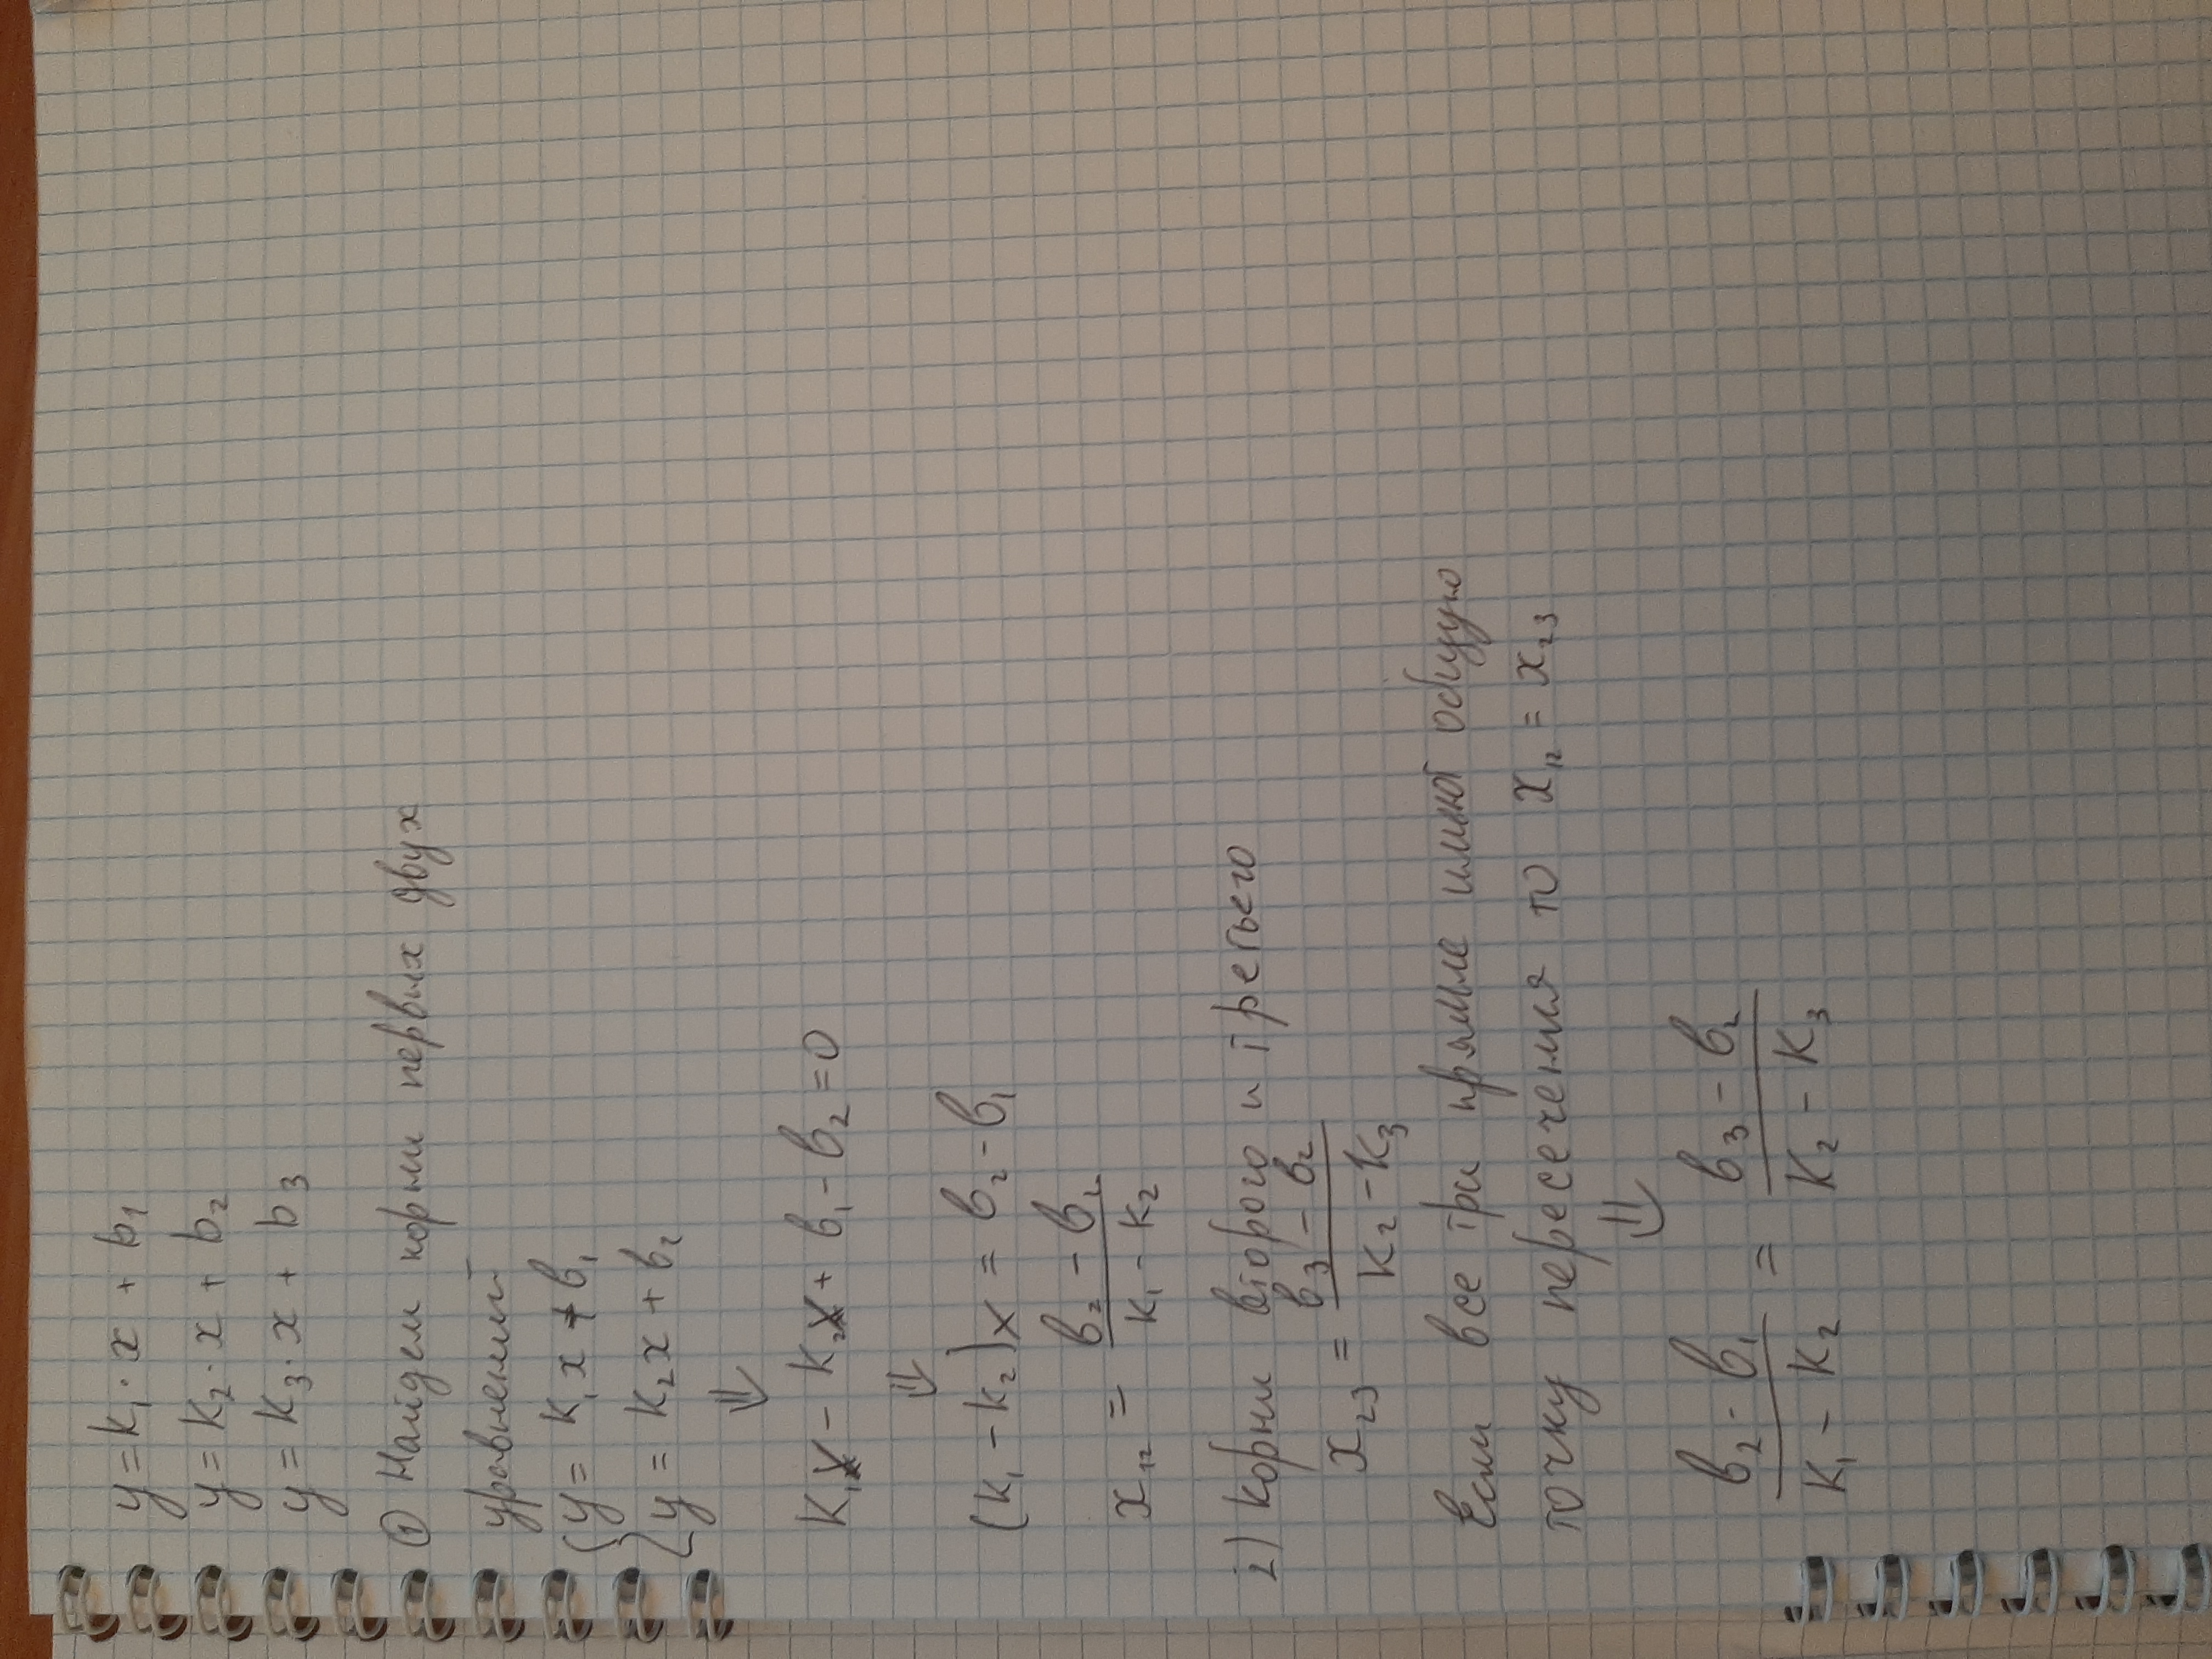 y = k₁ · x + b₁
y = k₂ · x + b₂
y = k₃ · x + b₃
① Найдем корни первых двух
уравнений
{ y = k₁x + в₁
y = k₂x + в₂
⇓
k₁x - k₂x + в₁ - в₂ = 0
⇓
(k₁ - k₂)x = в₂ - в₁
x₁₂ = (в₂ - в₁) / (k₁ - k₂)
2) Корни второго и третьего
x₂₃ = (в₃ - в₂) / (k₂ - k₃)
Если все три прямые имеют общую
точку пересечения то x₁₂ = x₂₃
⇓
(в₂ - в₁) / (k₁ - k₂) = (в₃ - в₂) / (k₂ - k₃)